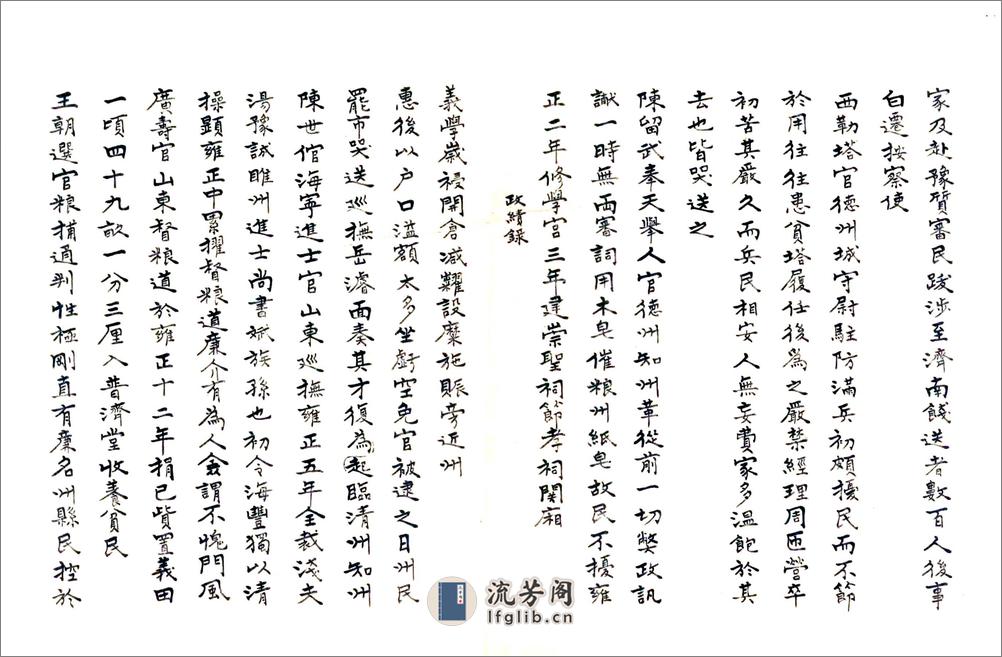 家及赴豫質審民跋涉至濟南餞送者數百人後事
白遷按察使
西勒塔官德州城守尉駐防滿兵初頗擾民而不節
於用往往患貧塔履任後為之嚴禁經理周匝營卒
初苦其嚴久而兵民相安人無妄費家多溫飽於其
去也皆哭送之
陳留武奉天舉人官德州知州革從前一切獘政訊
讞一時無兩審詞用木皂催粮州紙皂故民不擾雍
正二年修學宮三年建崇聖祠節孝祠関廂
政績錄
義學嵗祲開倉減糶設糜施賑旁近州
惠後以户口溢額太多坐虧空免官被逮之日州民
罷市哭送巡撫岳濬面奏其才復為起臨清州知州
陳世倌海寧進士官山東巡撫雍正五年全裁淺夫
湯豫誠睢州進士尚書斌族孫也初令海豐獨以清
操顯雍正中累擢督粮道廉介有為人僉謂不愧門風
廣壽官山東督粮道於雍正十二年捐已貲置義田
一頃四十九畝一分三厘入普濟堂收養貧民
王朝選官粮捕通判性極剛直有廉名州縣民控於
流芳阁
lfglib.cn